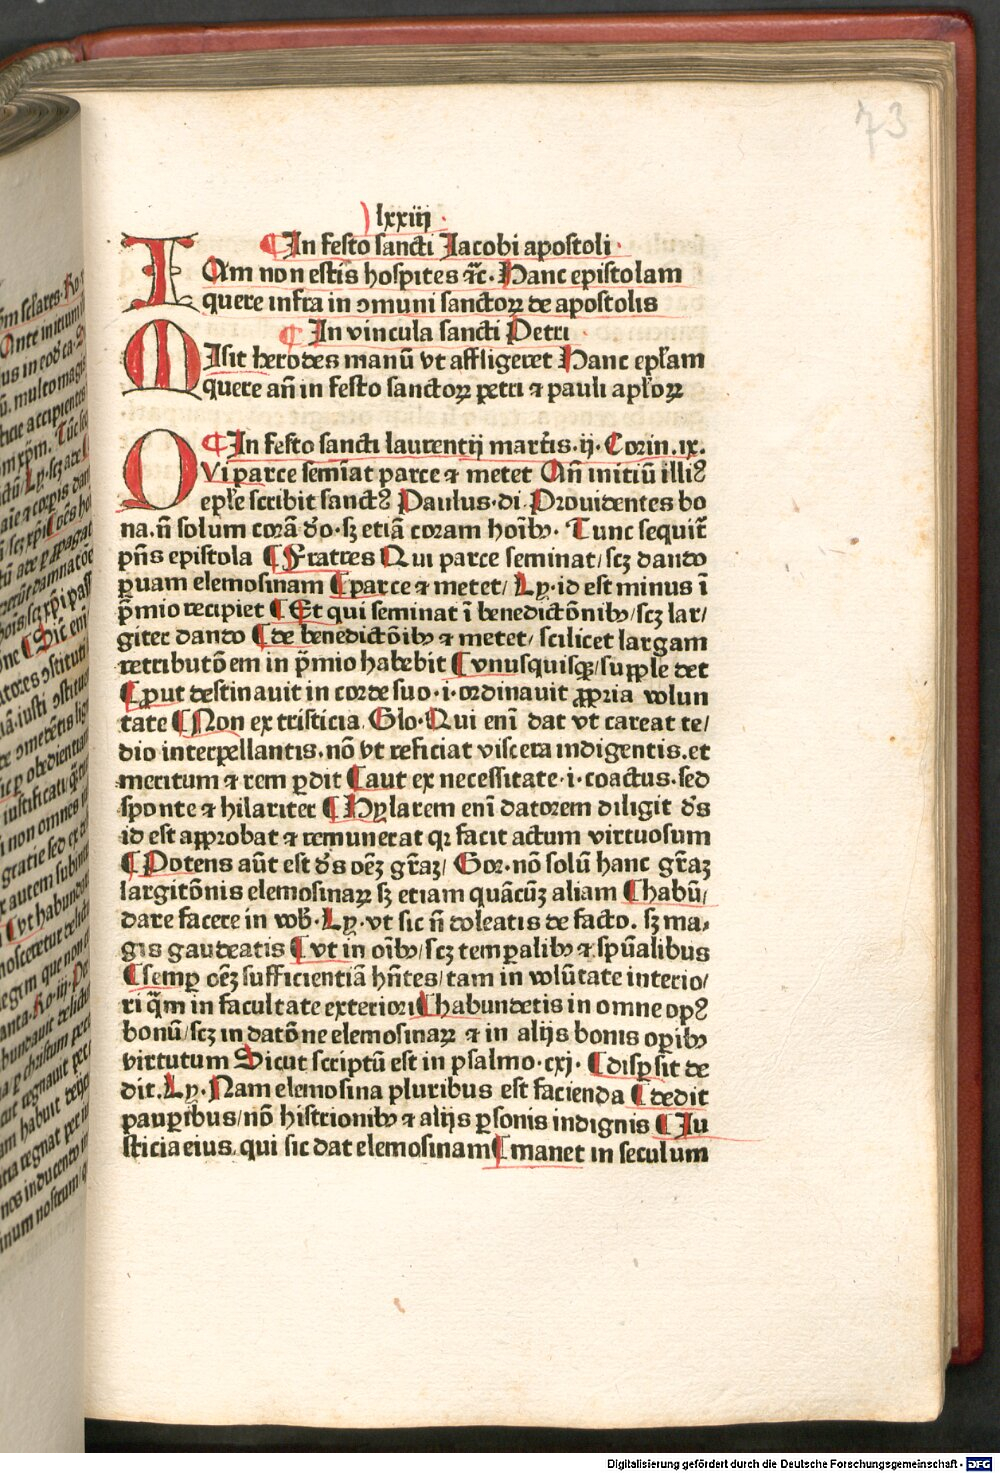 73
lxxiij
¶ In festo sancti Jacobi apostoli
IAm non estis hospites ⁊c̄. Hanc epistolam
quere infra in ↄmuni sanctoꝝ de apostolis
¶ In vincula sancti Petri
MIsit herodes manū vt affligeret Hanc epl̄am
quere an̄ in festo sanctoꝝ petri ⁊ pauli apl̄oꝝ
¶ In festo sancti laurentij martir̄s. ij. Corin. ix.
QVi parce semīat parce ⁊ metet An̄ initiū illiꝰ
epl̄e scribit sanctꝰ Paulus. di. Prouidentes bo
na. n̄ solum corā d̄o. sꝫ etiā coram hoīb⁹. Tunc sequit̄
pn̄s epistola ¶ Fratres Qui parce seminat/ scꝫ dando
ꝑuam elemosinam ¶ parce ⁊ metet/ Ly. id est minus ī
p̄mio recipiet ¶ Et qui seminat ī benedictōnib⁹/ scꝫ lar/
giter dando ¶ de benedictōib⁹ ⁊ metet/ scilicet largam
retributōem in p̄mio habebit ¶ vnusquisqꝫ/ supple det
¶ ꝓut destinauit in corde suo. i. ordinauit ꝓpria volun
tate ¶ Non ex tristicia. Glo. Qui enī dat vt careat te/
dio interpellantis. nō vt reficiat viscera indigentis. et
meritum ⁊ rem ꝑdit ¶ aut ex necessitate. i. coactus. sed
sponte ⁊ hilariter ¶ Hylarem enī datorem diligit d̄s
id est approbat ⁊ remunerat qꝛ facit actum virtuosum
¶ Potens aūt est d̄s oēꝫ gr̄aꝫ/ Gor. nō solū hanc gr̄aꝫ
largitōnis elemosinaꝝ sꝫ etiam quācūꝫ aliam ¶ habū/
dare facere in vob̄. Ly. vt sic n̄ doleatis de facto. sꝫ ma/
gis gaudeatis ¶ vt in oīb⁹/ scꝫ temꝑalib⁹ ⁊ spūalibus
¶ semꝑ oēꝫ sufficientiā hn̄tes/ tam in volūtate interio/
ri q̄m in facultate exteriori ¶ habundetis in omne opꝰ
bonū/ scꝫ in datōne elemosinaꝝ ⁊ in alijs bonis oꝑib⁹
virtutum Sicut scriptū est in psalmo. cxj. ¶ disꝑsit de
dit. Ly. Nam elemosina pluribus est facienda ¶ dedit
pauꝑibus/ nō histrionib⁹ ⁊ alijs ꝑsonis indignis ¶ Iu
sticia eius. qui sic dat elemosinam ¶ manet in seculum
Digitalisierung gefördert durch die Deutsche Forschungsgemeinschaft - DFG